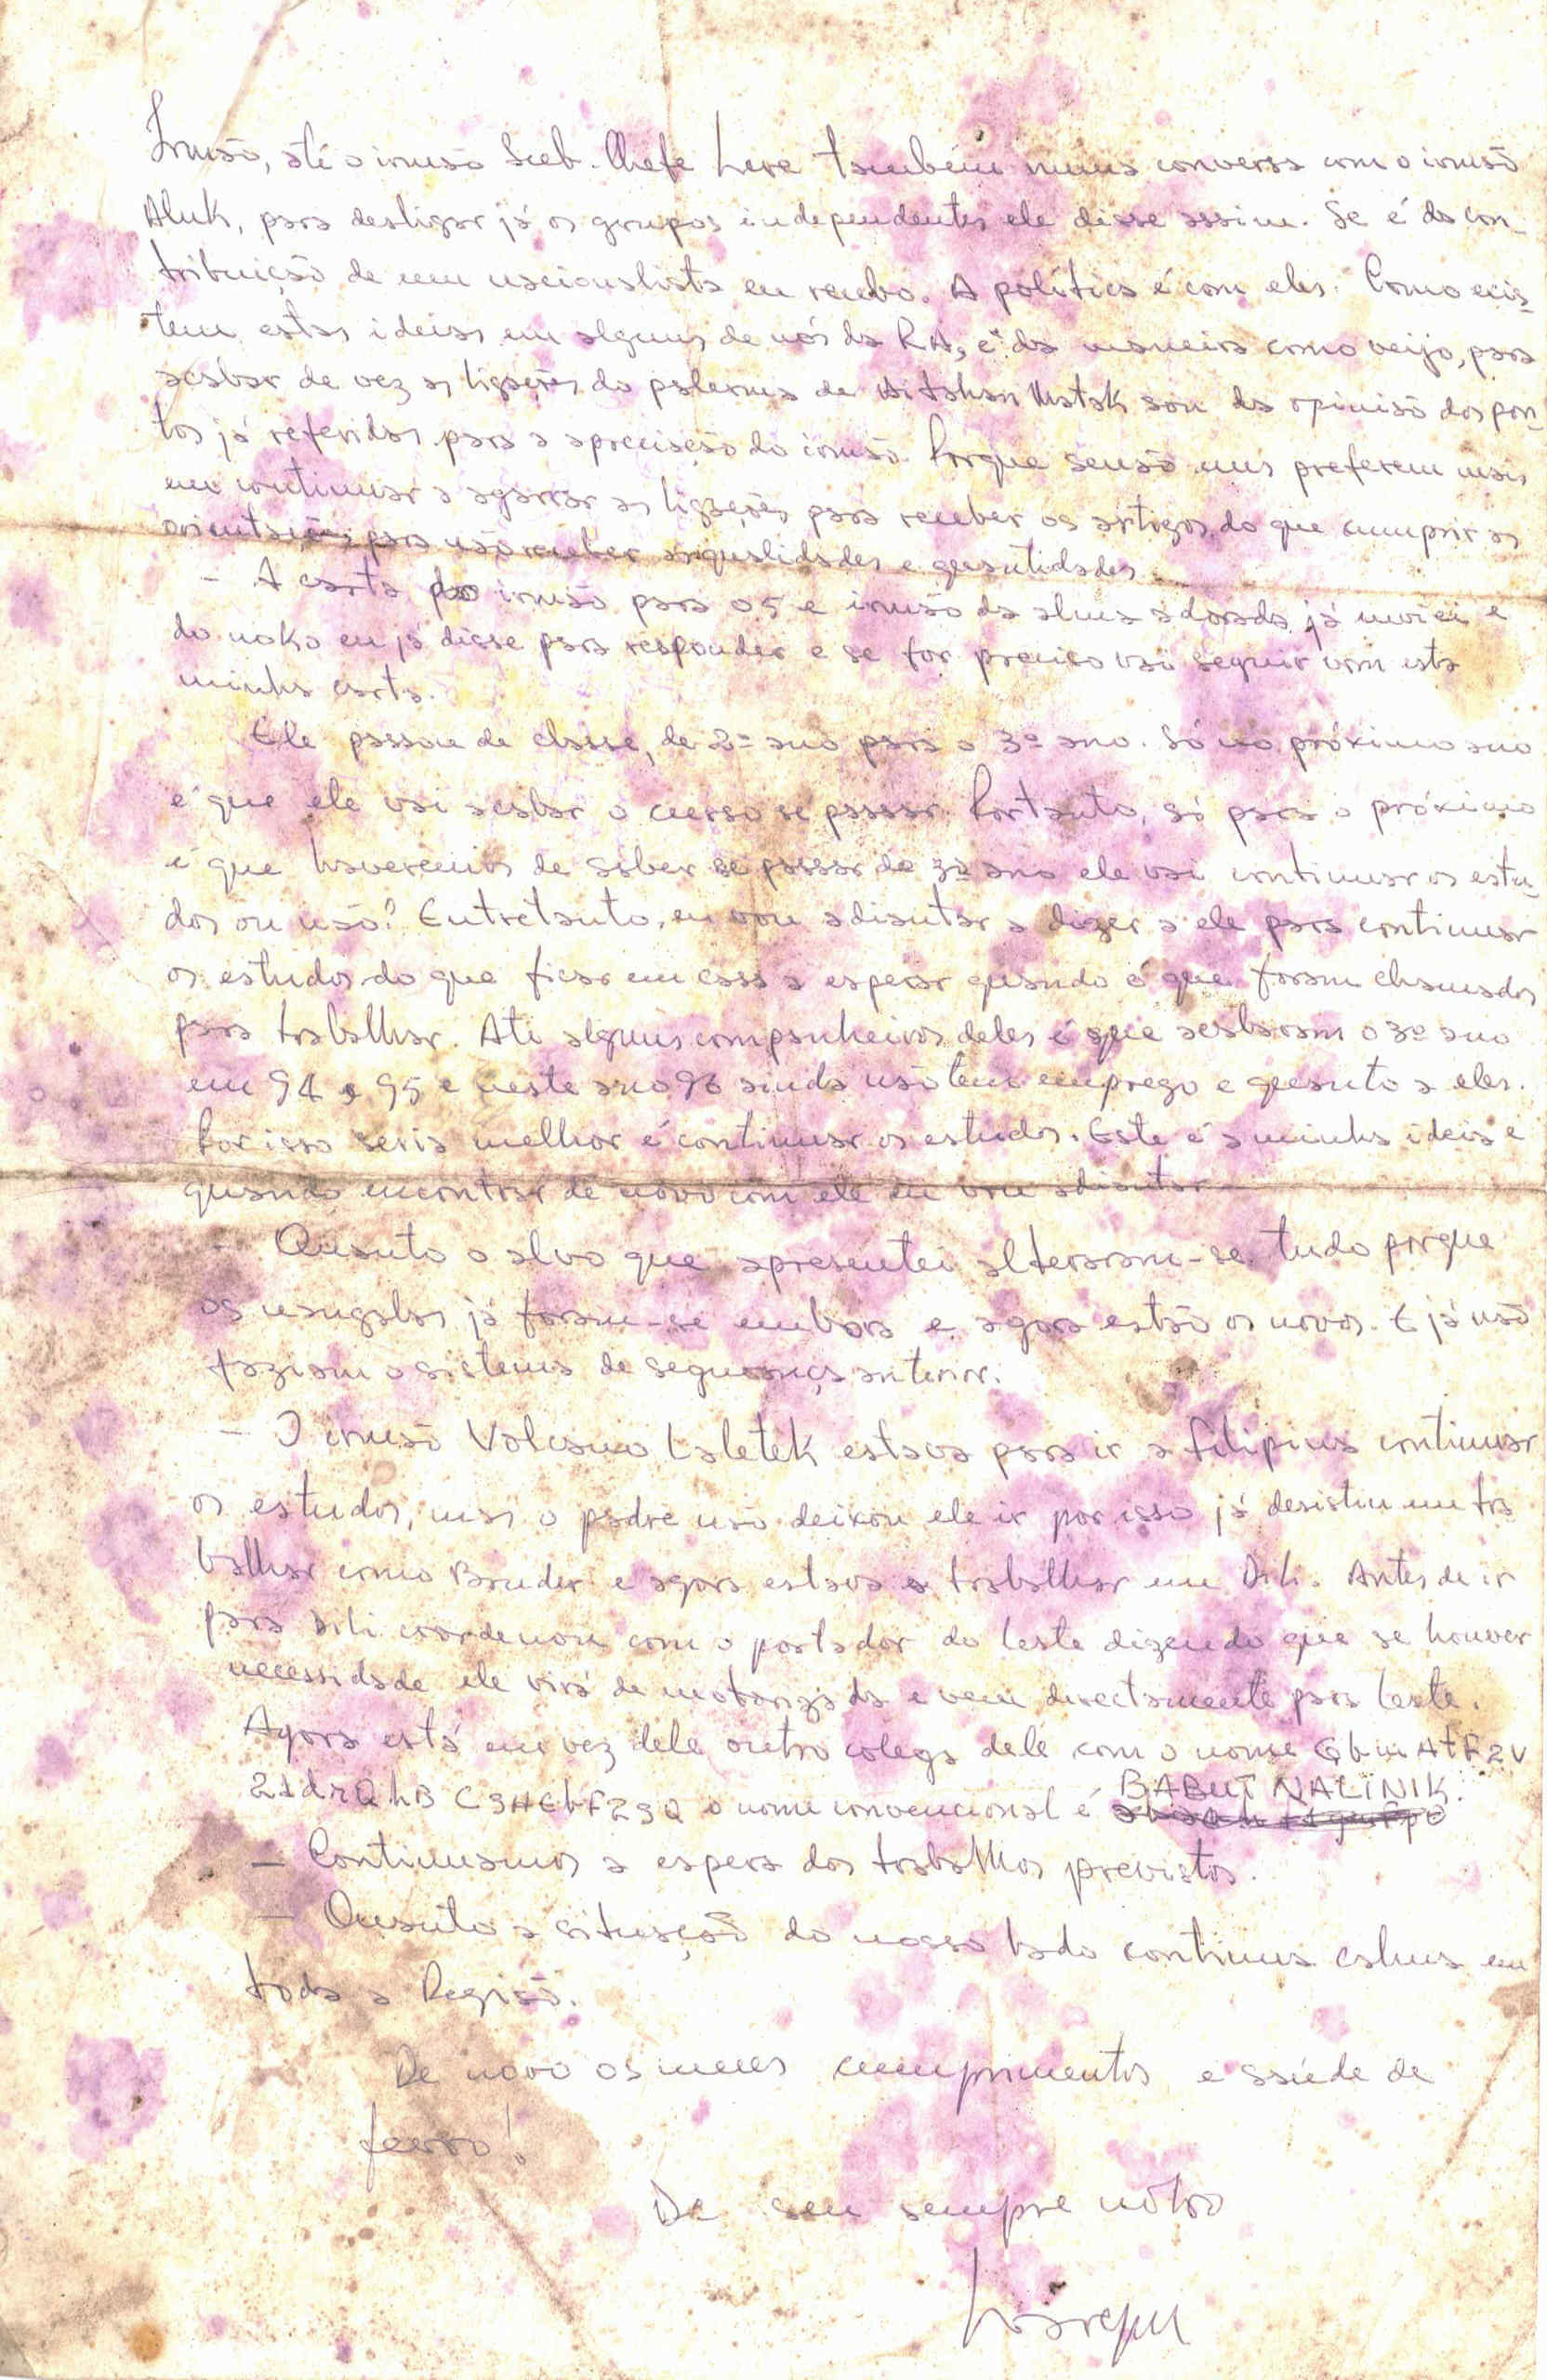 Irmão, até o irmão Sub. Chefe Lere também numa conversa com o irmão
Aluk, para desligar já os grupos independentes ele disse assim. Se é da con-
tribuição de um nacionalista eu recebo. A política é com eles. Como exis-
tem estas ideias em alguns de nós da R.A, é da maneira como veijo, para
acabar de vez as ligações do palerma de Bitahan Matak sou da opinião dos pon-
tos já referidos para a apreciação do irmão. Porque senão uns preferem mais
em continuar a agarrar as ligações para receber os artigos do que cumprir as
orientações para não receber as qualidades e quantidades.
- A carta do irmão para o 5 e irmão da alma adorada já enviei e
do noko eu já disse para responder e se for preciso vai seguir com esta
minha carta.
Ele passou de classe, de 2º ano para o 3º ano. Só no próximo ano
é que ele vai acabar o curso se passar. Portanto, só para o próximo
é que haveremos de saber se passar do 3º ano ele vai continuar os estu-
dos ou não? Entretanto, eu vou adiantar a dizer a ele para continuar
os estudos do que ficar em casa a esperar quando é que foram chamados
para trabalhar. Até alguns companheiros deles é que acabaram o 3º ano
em 94 e 95 e neste ano 96 ainda não tem emprego e quanto a eles.
Por isso seria melhor é continuar os estudos. Este é a minha ideia e
quando encontrar de novo com ele eu vou adiantar
- Quanto o alvo que apresentei alteraram-se tudo porque
os nangalas já foram-se embora e agora estão os novos. E já não
faziam o sistema de segurança anterior.
- O irmão Volcano Laletek estava para ir a Filipina continuar
os estudos, mas o padre não deixou ele ir por isso já desistiu em tra
balhar como Bruder e agora estava a trabalhar em Dili. Antes de ir
para Dili coordenou com o portador do leste dizendo que se houver
necessidade ele virá de motorizada e vem directamente para leste.
Agora está em vez dele outro colega dele com o nome
o nome convencional é BABUI NALINIK.
- Continuamos a espera dos trabalhos previstos.
- Quanto a situação do nosso lado continua calma em
toda a Região.
De novo os meus cumprimentos e saúde de
ferro!
De seu sempre